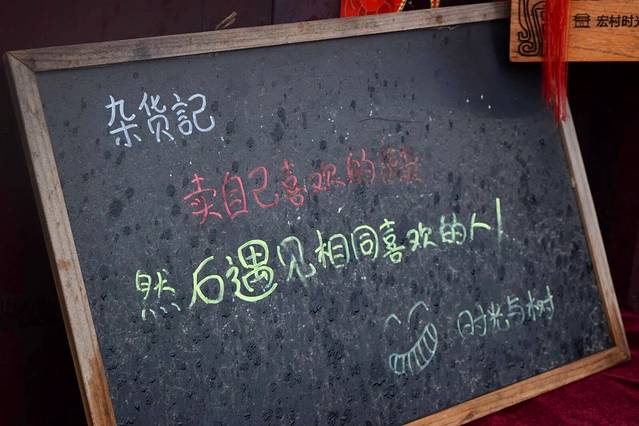 宏村时光
杂货記
卖自己喜欢的
然后遇见相同喜欢的人!
时光与树